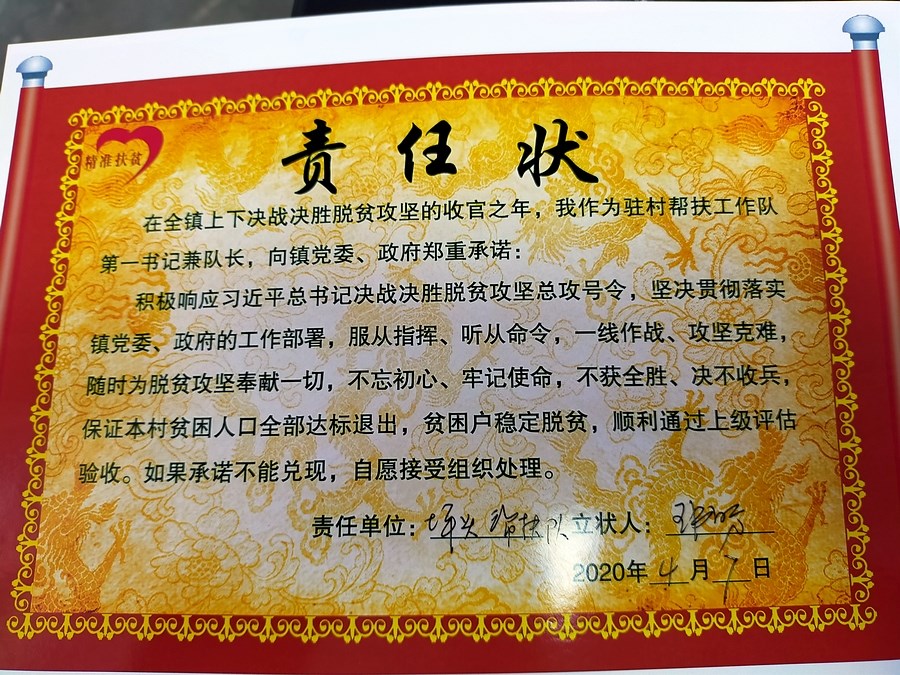 精准扶贫
责任状
在全镇上下决战决胜脱贫攻坚的收官之年，我作为驻村帮扶工作队
第一书记兼队长，向镇党委、政府郑重承诺：
积极响应习近平总书记决战决胜脱贫攻坚总攻号令，坚决贯彻落实
镇党委、政府的工作部署，服从指挥、听从命令，一线作战、攻坚克难，
随时为脱贫攻坚奉献一切，不忘初心、牢记使命，不获全胜、决不收兵，
保证本村贫困人口全部达标退出，贫困户稳定脱贫，顺利通过上级评估
验收。如果承诺不能兑现，自愿接受组织处理。
责任单位：坪头帮扶队 立状人：
2020年4月7日